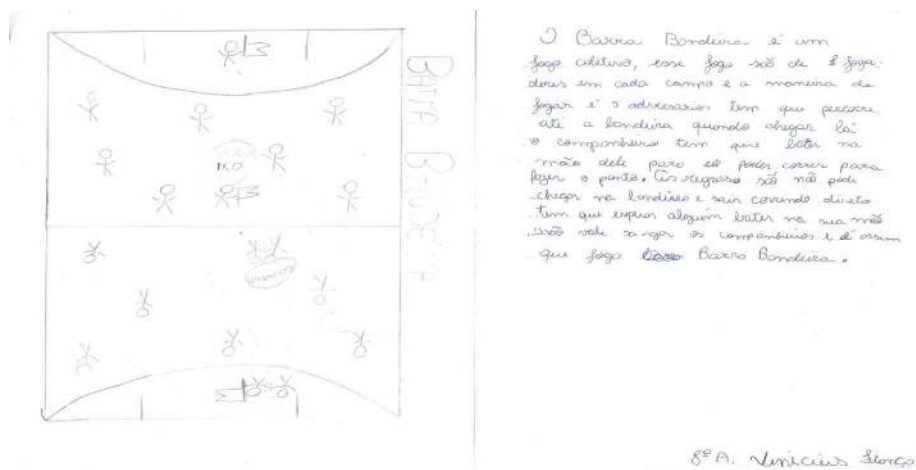 BARRA BANDEIRA
O Barra Bandeira é um
jogo coletivo, esse jogo são de 8 joga-
dores em cada campo e a maneira de
jogar é o adversarios tem que percorre
até a bandeira quando chegar lá
o companheiro tem que bater na
mão dele para ele poder correr para
fazer o ponto. as regras são não pode
chegar na bandeira e sair correndo direto
tem que espera alguém bater na sua mão
não vale xingar os companheiros e é assim
que joga Barra Bandeira.
8º A. Vinicius